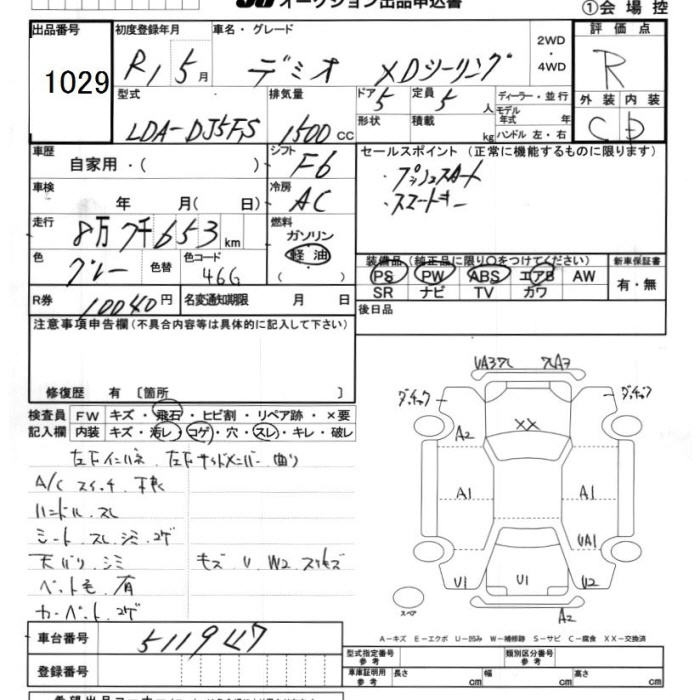 オークション出品申込書
①会場控
出品番号 1029
初度登録年月 R1 5月
車名・グレード デミオ XDツーリング
2WD・4WD
評価点 R
外装 C 内装 D
型式 LDA-DJ5FS
排気量 1500cc
ドア 5
形状
定員 5人
積載 kg
ディーラー・並行
モデル年式 年
ハンドル 左・右
車歴 自家用・( )
シフト F6
セールスポイント (正常に機能するものに限ります)
・プッシュスタート
・スマートキー
車検 年 月( 日)
冷房 AC
走行 8万7千653km
燃料 ガソリン 軽油 ( )
色 グレー 色替
色コード 46G
装備品 (純正品に限り○をつけてください)
PS PW ABS エアB AW
SR ナビ TV カワ
新車保証書 有・無
R券 10040円
名変通知期限 月 日
後日品
注意事項申告欄(不具合内容等は具体的に記入して下さい)
修復歴 有 〔箇所 〕
検査員記入欄
FW キズ・飛石・ヒビ割・リペア跡・×要
内装 キズ・汚レ・コゲ・穴・スレ・キレ・破レ
左フインパネ 左フサイドメンバー 曲り
A/C スイッチ 不良
ハンドル スレ
シート スレ シミ コゲ
天バリ シミ
キズ U W2 スリキズ
ペット毛 有
カーペット コゲ
UA3ワレ
A2
XX
A1
A1
UA1
U1
U1
U2
スペア
A2
A-キズ E-エクボ U-凹み W-補修跡 S-サビ C-腐食 XX-交換済
車台番号 511947
登録番号
型式指定番号 参考
類別区分番号 参考
車庫証明用 参考 長さ cm 幅 cm 高さ cm